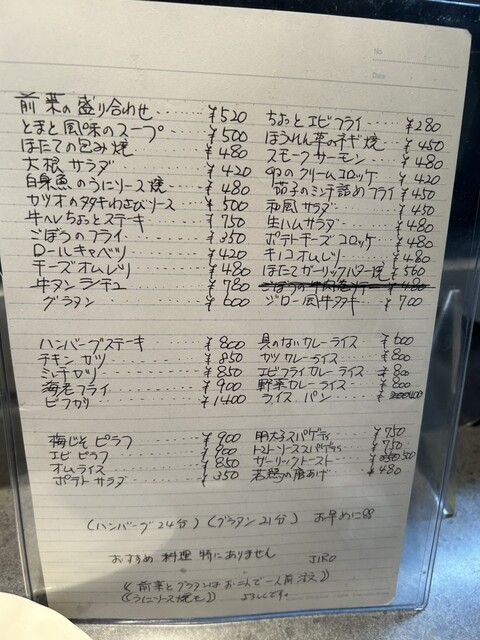 No.
Date
前菜の盛り合わせ ¥520
とまと風味のスープ ¥500
ほたての包み焼 ¥480
大根サラダ ¥420
白身魚のうにソース焼 ¥480
カツオのタタキわさびソース ¥500
牛ヘレちょっとステーキ ¥750
ごぼうのフライ ¥350
ロールキャベツ ¥420
チーズオムレツ ¥480
牛タンシチュー ¥780
グラタン ¥600
ちょっとエビフライ ¥280
ほうれん草のネギ焼 ¥450
スモークサーモン ¥480
タコのクリームコロッケ ¥420
茄子のミンチ詰めフライ ¥450
和風サラダ ¥450
生ハムサラダ ¥480
ポテトチーズコロッケ ¥480
キノコオムレツ ¥480
ほたてガーリックバター焼 ¥560
ジロー風牛タタキ ¥700
ハンバーグステーキ ¥800
チキンカツ ¥850
ミンチカツ ¥850
海老フライ ¥900
ビフカツ ¥1400
具のないカレーライス ¥600
カツカレーライス ¥800
エビフライカレーライス ¥800
野菜カレーライス ¥800
ライス パン
梅じそピラフ ¥900
エビピラフ ¥900
オムライス ¥850
ポテトサラダ ¥350
明太子スパゲティ ¥750
トマトソーススパゲティ ¥750
ガーリックトースト
若鶏の唐あげ ¥480
(ハンバーグ24分)(グラタン21分) お早めに
おすすめ料理 特にありません JIRO
《前菜とグラタンはお二人で一人前注文》
《うにソース焼も》 よろしくです。